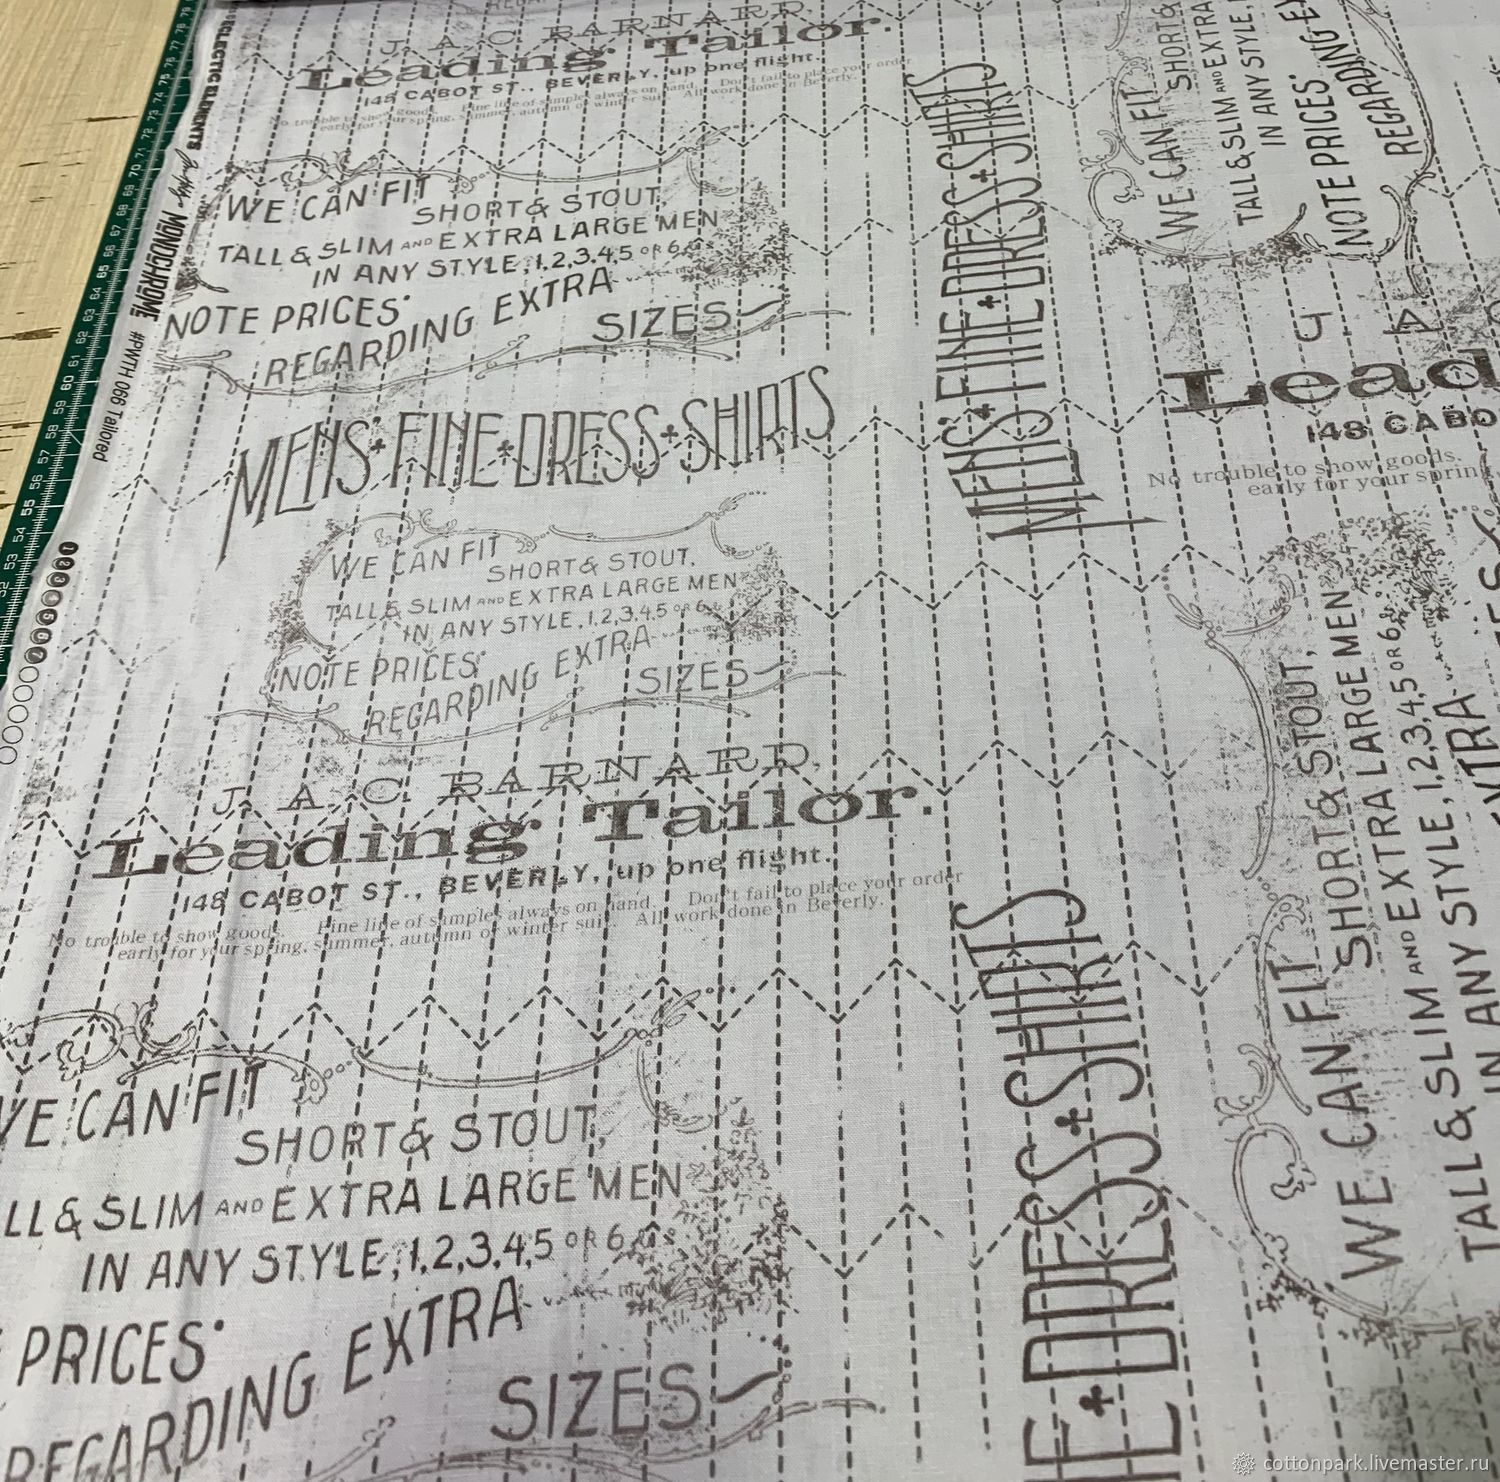 J. A. C. BARNARD,
Leading Tailor.
148 CABOT ST., BEVERLY, up one flight.
No trouble to show goods. Fine line of samples always on hand. Don't fail to place your order
early for your spring, summer, autumn or winter suit. All work done in Beverly.
WE CAN FIT
SHORT & STOUT,
TALL & SLIM AND EXTRA LARGE MEN
IN ANY STYLE, 1,2,3,4,5 OR 6,
NOTE PRICES
REGARDING EXTRA
SIZES
MENS' FINE DRESS SHIRTS
WE CAN FIT
SHORT & STOUT,
TALL & SLIM AND EXTRA LARGE MEN
IN ANY STYLE, 1,2,3,4,5 OR 6,
NOTE PRICES
REGARDING EXTRA
SIZES
J. A. C. BARNARD,
Leading Tailor.
148 CABOT ST., BEVERLY, up one flight.
No trouble to show goods. Fine line of samples always on hand. Don't fail to place your order
early for your spring, summer, autumn or winter suit. All work done in Beverly.
WE CAN FIT
SHORT & STOUT,
TALL & SLIM AND EXTRA LARGE MEN
IN ANY STYLE, 1,2,3,4,5 OR 6,
PRICES
REGARDING EXTRA
SIZES
MENS' FINE DRESS SHIRTS
DRESS SHIRTS
WE CAN FIT
SHORT &
TALL & SLIM AND EXTRA
IN ANY STYLE,
NOTE PRICES
REGARDING
J A
Lead
148 CABO
No trouble to show goods.
early for your spring
WE CAN FIT
SHORT & STOUT,
TALL & SLIM AND EXTRA LARGE MEN
IN ANY STYLE, 1,2,3,4,5 OR 6,
EXTRA
ECLECTIC ELEMENTS
MONOCHROME
#PWTH 066 Tailored
cottonpark.livemaster.ru